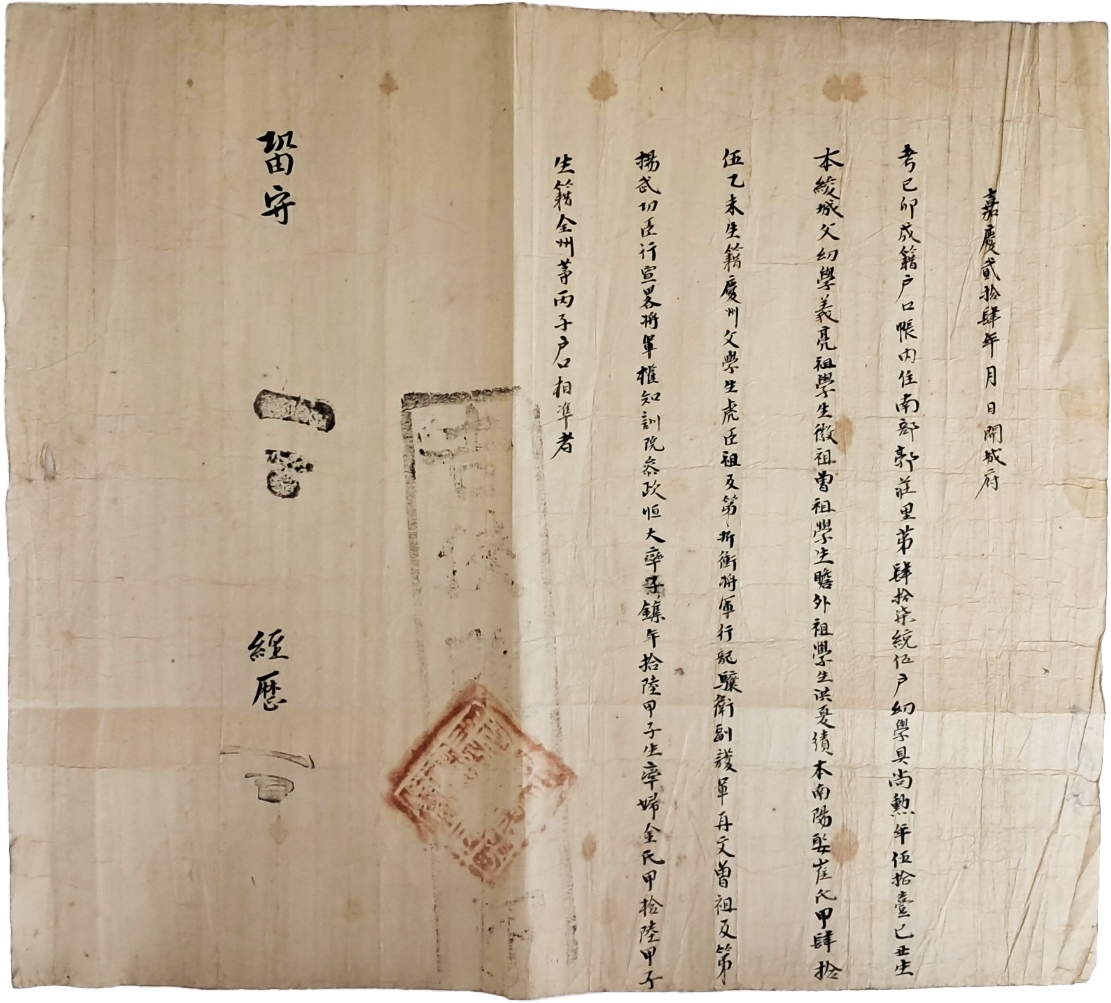 嘉慶貳拾肆年 月 日開城府
考己卯成籍戶口帳內住南部 莊里第肆拾柒統伍戶幼學具尚勲年伍拾壹己丑生
本綾城父幼學義亮祖學生徵祖曾祖學生瞻外祖學生洪夏績本南陽娶崔氏甲肆拾
伍乙未生籍慶州父學生虎臣祖及第折衝將軍行龍驤衛副護軍再文曾祖及第
揚武功臣行宣畧將軍權知訓院叅政恒大率子鎮年拾陸甲子生率婦金氏甲拾陸甲子
生籍全州等丙子戶口相準者
留守
經歷